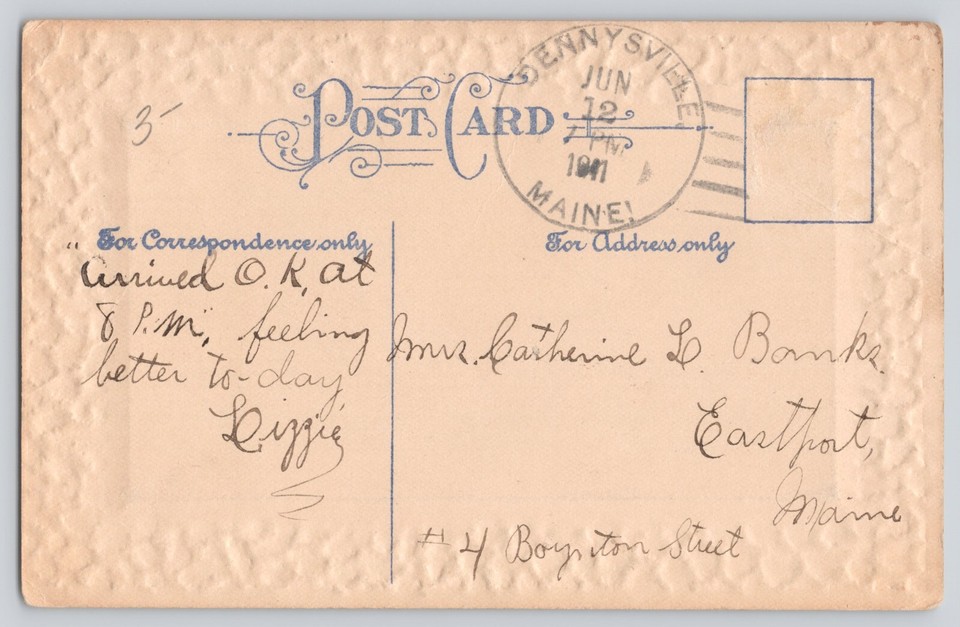 3-
POST CARD
DENNYSVILLE
JUN
12
PM
1911
MAINE
For Correspondence only
For Address only
" Arrived O.K. at
8 P.M., feeling
better to-day
Lizzie
Mrs. Catherine L. Banks.
Eastport,
Maine
#4 Boynton Street